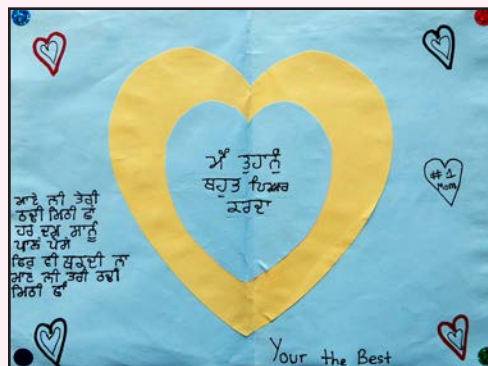 ਮੈਂ ਤੁਹਾਨੂੰ
ਬਹੁਤ ਪਿਆਰ
ਕਰਦਾ
#1
Mom
ਮਾਏ ਨੀ ਤੇਰੀ
ਠਢੀ ਮਿਠੀ ਛਾਂ
ਹਰ ਦਮ ਸਾਨੂੰ
ਪਾਲੇ ਪੋਸੇ
ਫਿਰ ਵੀ ਥਕਦੀ ਨਾ
ਮਾਏ ਨੀ ਤੇਰੀ ਠਢੀ
ਮਿਠੀ ਛਾਂ
Your the Best